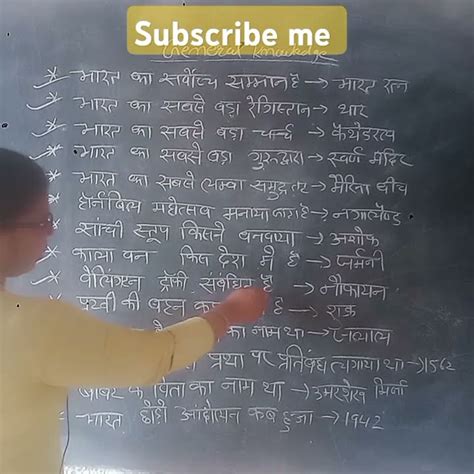 Subscribe me
General Knowledge
* भारत का सर्वोच्च सम्मान है → भारत रत्न
* भारत का सबसे बड़ा रेगिस्तान → थार
* भारत का सबसे बड़ा चर्च → कैथेडरल
* भारत का सबसे बड़ा गुरुद्वारा → स्वर्ण मंदिर
* भारत का सबसे लम्बा समुद्र तट → मैरिना बीच
* हार्नबिल महोत्सव मनाया जाता है → नागालैण्ड
* सांची स्तूप किसने बनवाया → अशोक
* काला वन किस देश में है → जर्मनी
* वेलिंगटन ट्रॉफी संबंधित है → नौकायन
* पृथ्वी की बहन है → शुक्र
का नाम था →
प्रथा पर प्रतिबंध लगाया था → 1562
बाबर के पिता का नाम था → उमरशेख मिर्जा
भारत छोड़ो आंदोलन कब हुआ → 1942